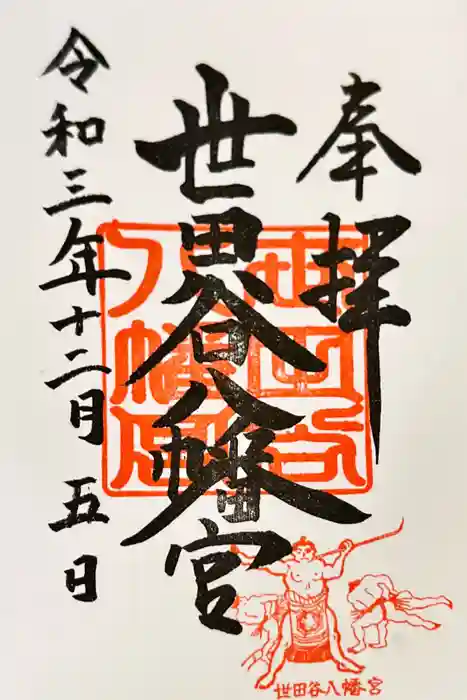 奉拝
世田谷八幡宮
令和三年十二月五日
世田谷八幡宮
世田谷八幡宮